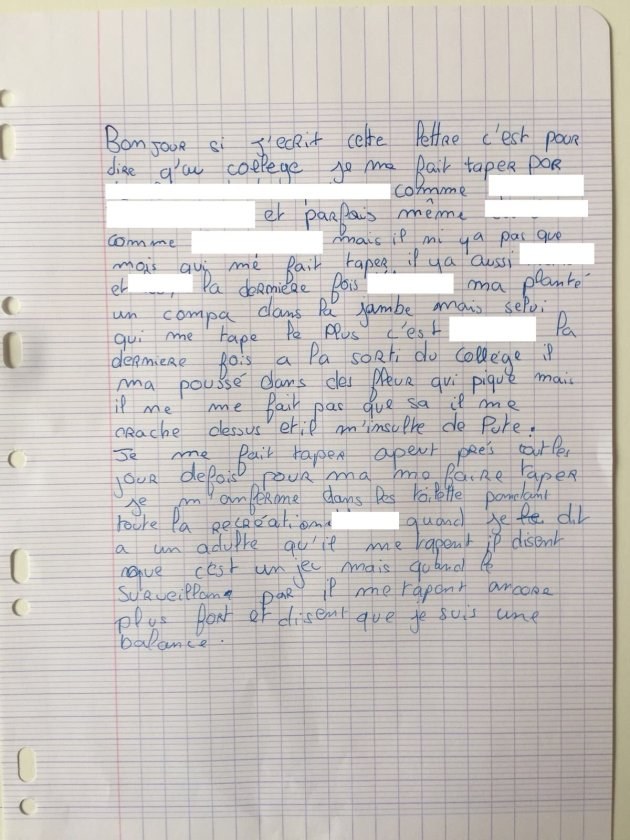 Bonjour si j'ecrit cette lettre c'est pour
dire q'au college je me fait taper por
comme
et parfois même
comme mais il ni ya pas que
mais qui me fait taper il ya aussi
et la dermière fois ma planté
un compa dans la jambe mais selui
qui me tape le plus c'est la
dermiere fois a la sorti du college il
ma poussé dans des fleur qui pique mais
il me me fait pas que sa il me
crache dessus et il m'insulte de Pute.
Je me fait taper apeut prés tout les
jour depois pour ma me faire taper
je m'anferme dans les toilette pendant
toute la recréation quand je le dit
a un adulte qu'il me tapent il disent
que c'est un jeu mais quand le
surveillant par il me tapont ancore
plus fort et disent que je suis une
balance.